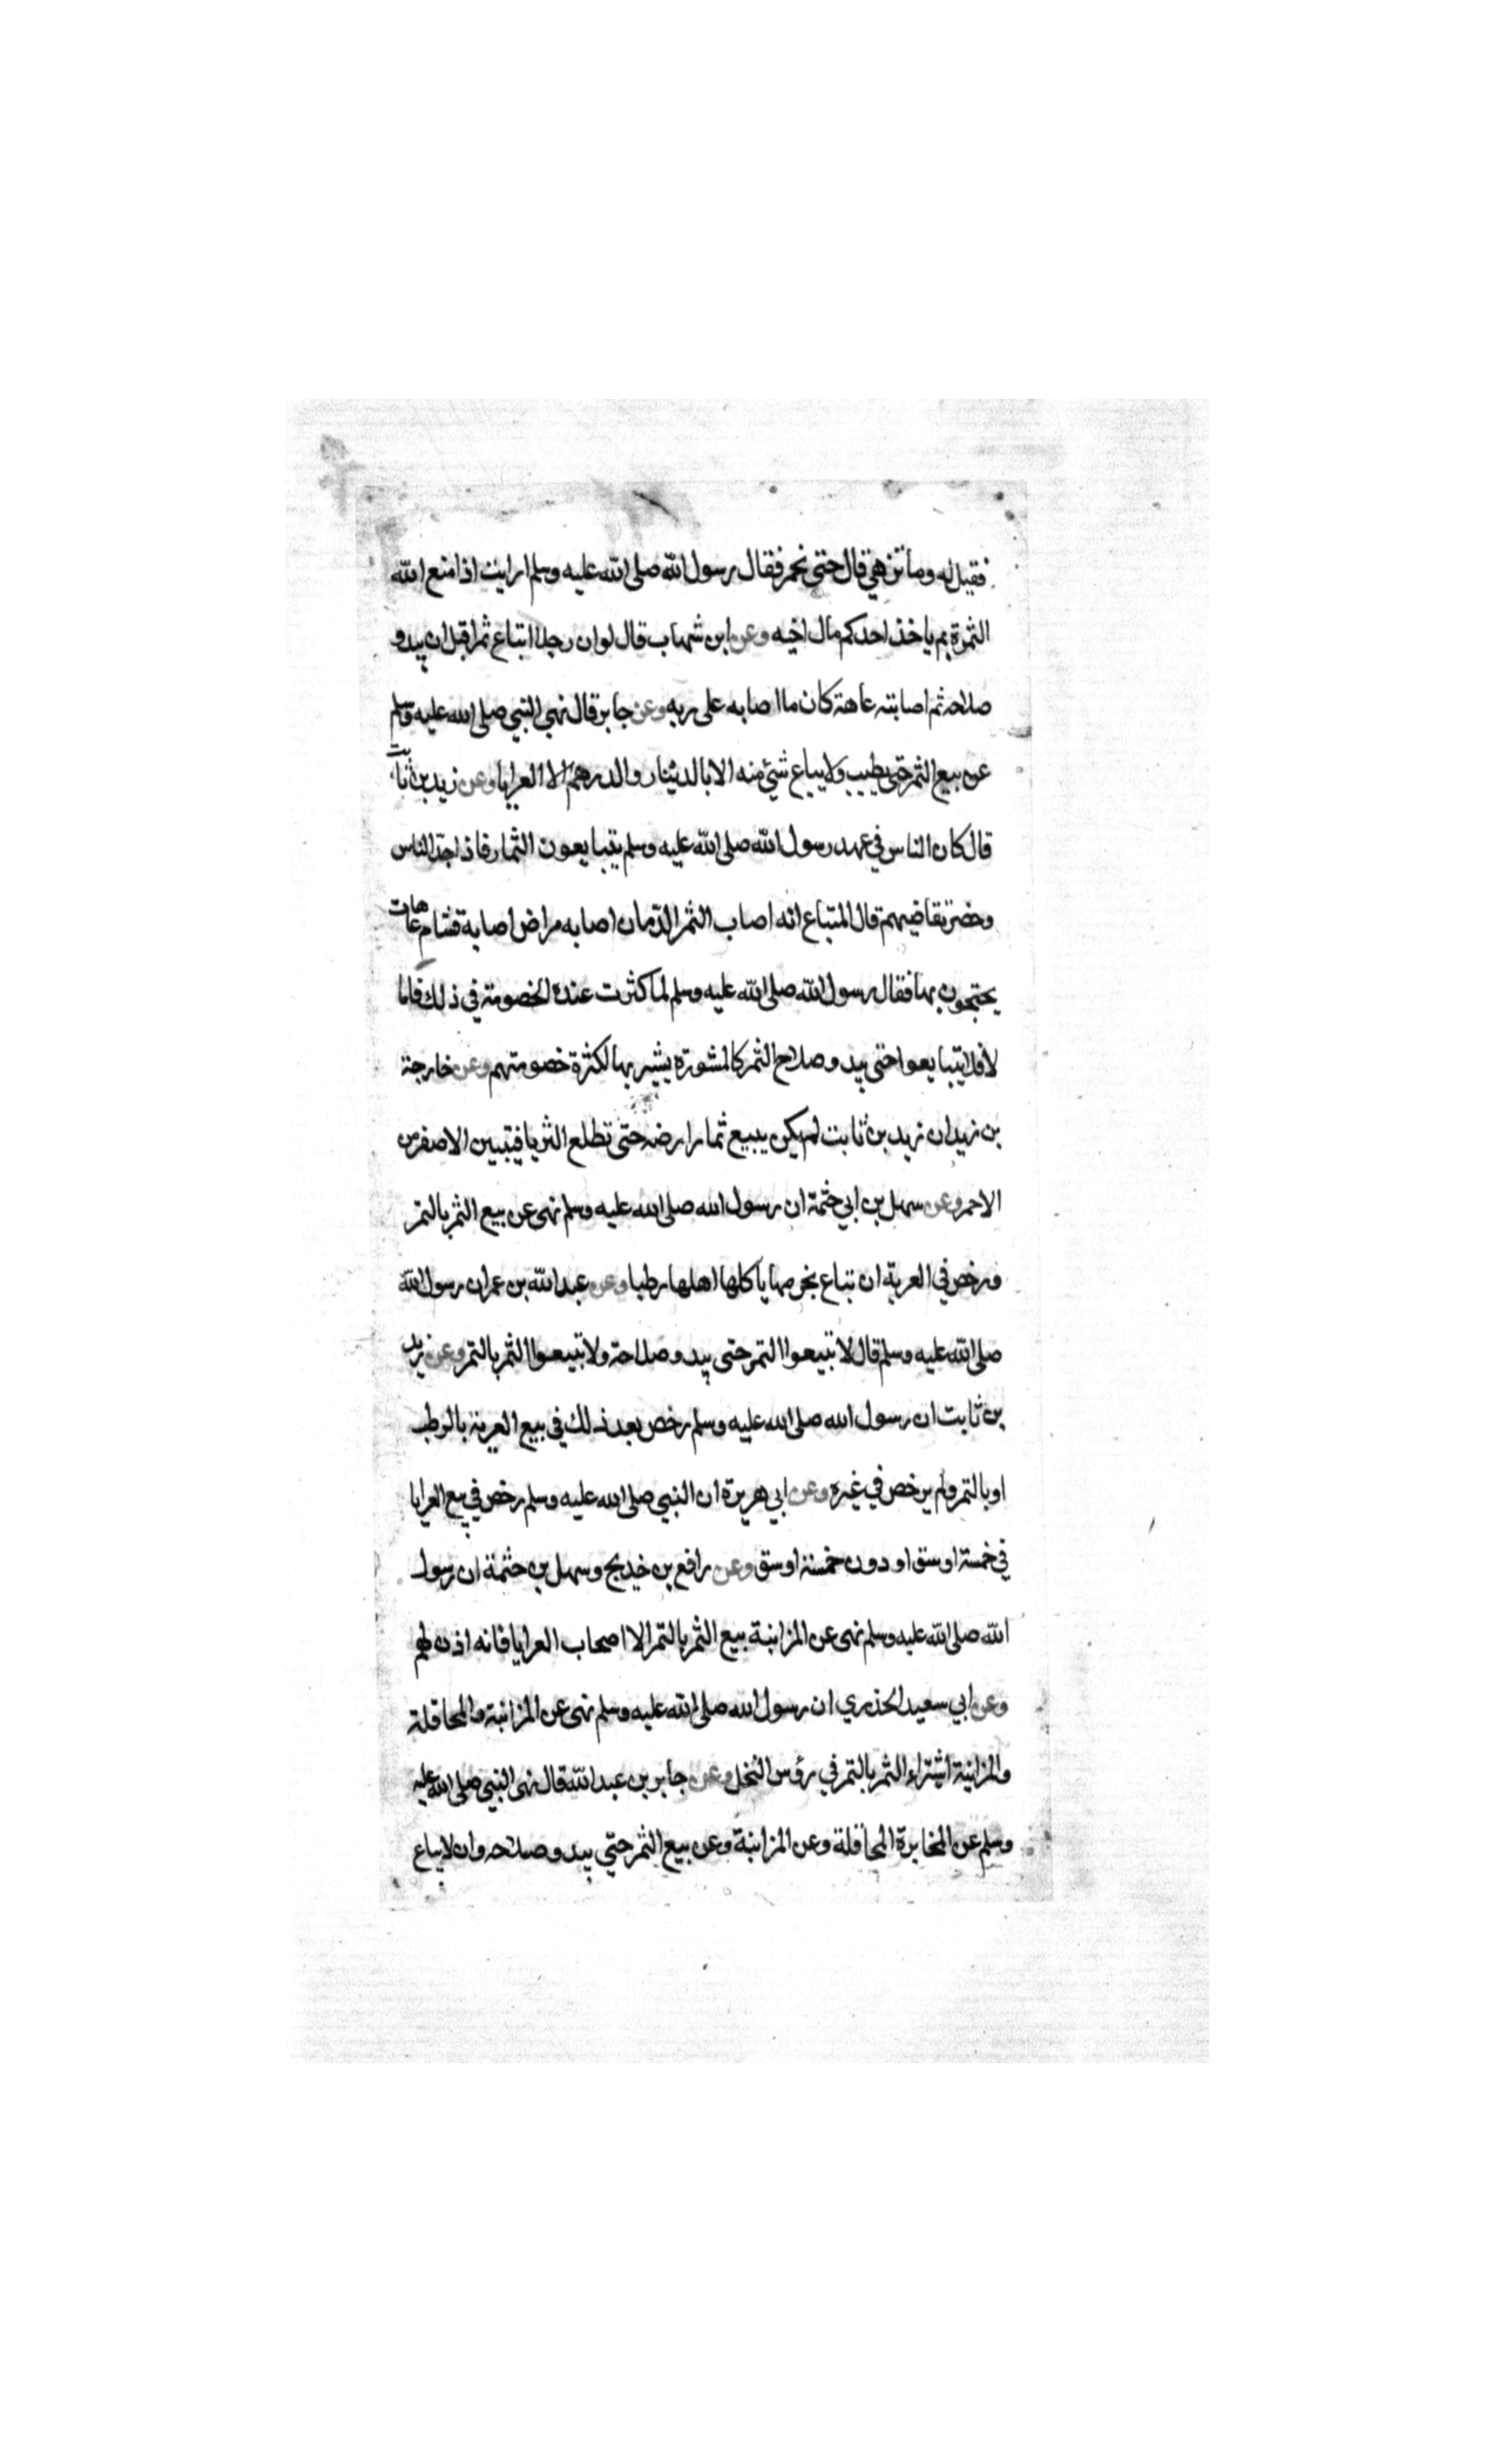 فقيل له وما تزهي قال حتى تحمر فقال رسول الله صلى الله عليه وسلم ارايت اذا منع الله
الثمرة بم ياخذ احدكم مال اخيه وعن ابن شهاب قال لو ان رجلا ابتاع ثمرا قبل ان يبدو
صلاحه ثم اصابته عاهة كان ما اصابه على ربه وعن جابر قال نهى النبي صلى الله عليه وسلم
عن بيع الثمر حتى يطيب ولا يباع شيء منه الا بالدينار والدرهم الا العرايا وعن زيد بن ثابت
قال كان الناس في عهد رسول الله صلى الله عليه وسلم يتبايعون الثمار فاذا جذ الناس
وحضر تقاضيهم قال المبتاع انه اصاب الثمر الدمان اصابه مراض اصابه قشام عاهات
يحتجون بها فقال رسول الله صلى الله عليه وسلم لما كثرت عنده الخصومة في ذلك فاما
لا فلا يتبايعوا حتى يبدو صلاح الثمر كالمشورة يشير بها لكثرة خصومتهم وعن خارجة
بن زيد ان زيد بن ثابت لم يكن يبيع ثمار ارضه حتى تطلع الثريا فيتبين الاصفر من
الاحمر وعن سهل بن ابي حثمة ان رسول الله صلى الله عليه وسلم نهى عن بيع الثمر بالتمر
ورخص في العرية ان تباع بخرصها ياكلها اهلها رطبا وعن عبد الله بن عمر ان رسول الله
صلى الله عليه وسلم قال لا تبيعوا التمر حتى يبدو صلاحه ولا تبيعوا الثمر بالتمر وعن زيد
بن ثابت ان رسول الله صلى الله عليه وسلم رخص بعد ذلك في بيع العرية بالرطب
او بالتمر ولم يرخص في غيره وعن ابي هريرة ان النبي صلى الله عليه وسلم رخص في بيع العرايا
في خمسة اوسق او دون خمسة اوسق وعن رافع بن خديج وسهل بن حثمة ان رسول
الله صلى الله عليه وسلم نهى عن المزابنة بيع الثمر بالتمر الا اصحاب العرايا فانه اذن لهم
وعن ابي سعيد الخدري ان رسول الله صلى الله عليه وسلم نهى عن المزابنة والمحاقلة
والمزابنة اشتراء الثمر بالتمر في رؤس النخل وعن جابر بن عبد الله قال نهى النبي صلى الله عليه
وسلم عن المخابرة المحاقلة وعن المزابنة وعن بيع الثمر حتى يبدو صلاحه وان لا يباع